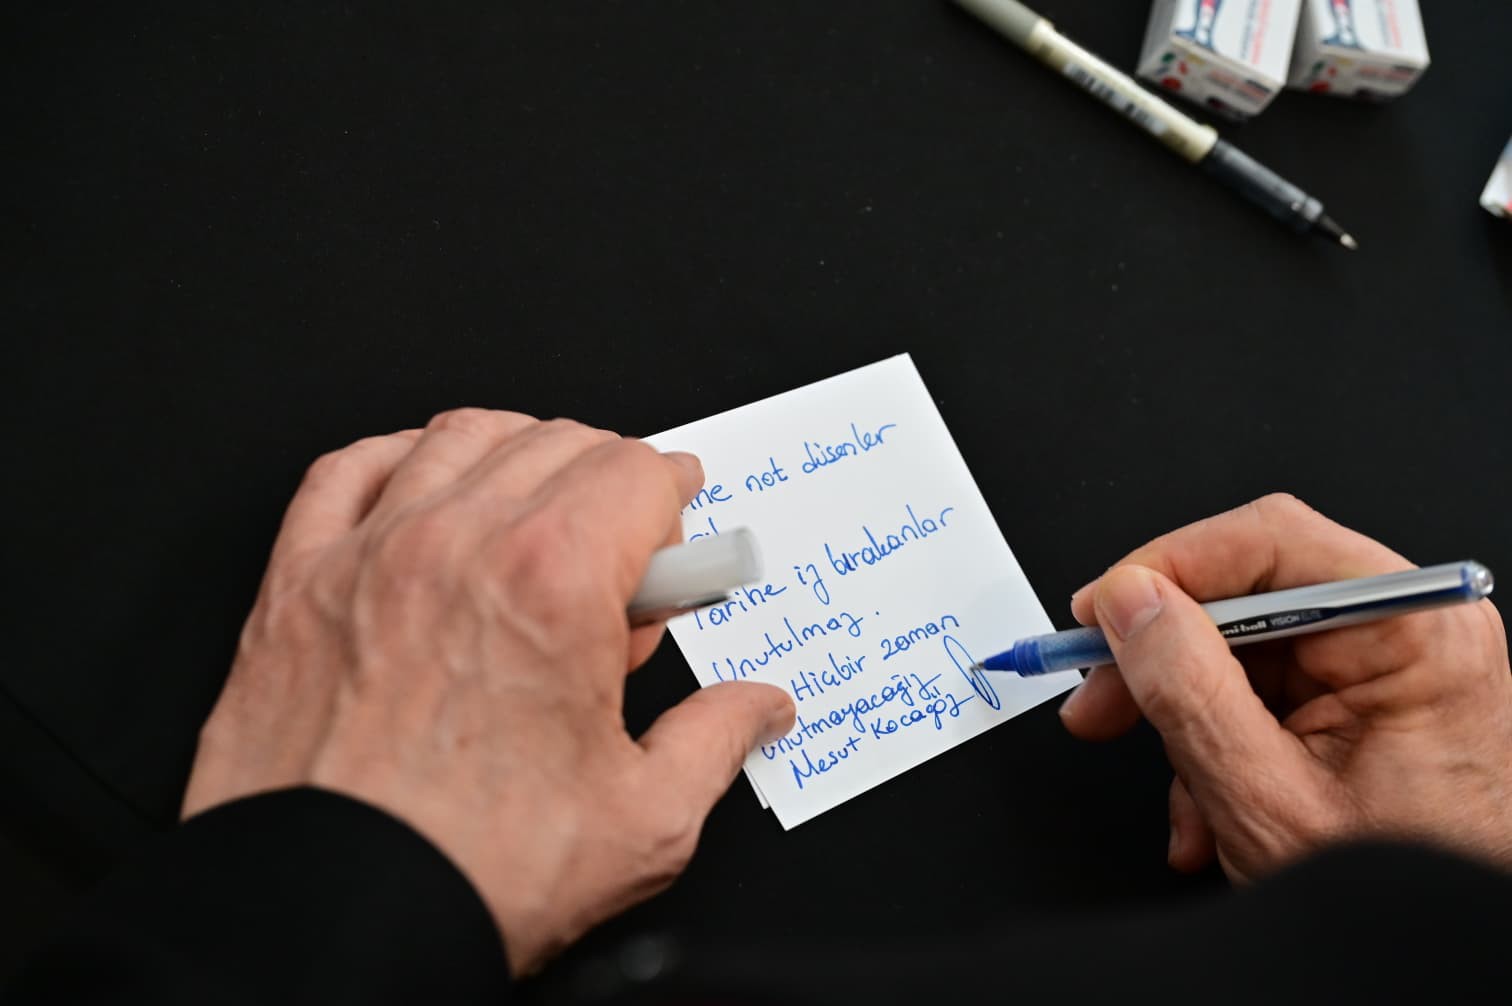 not düşenler
Tarihe iz bırakanlar
Unutulmaz.
Hiçbir zaman
unutmayacağız
Mesut Kocagöz
uni-ball VISION ELITE